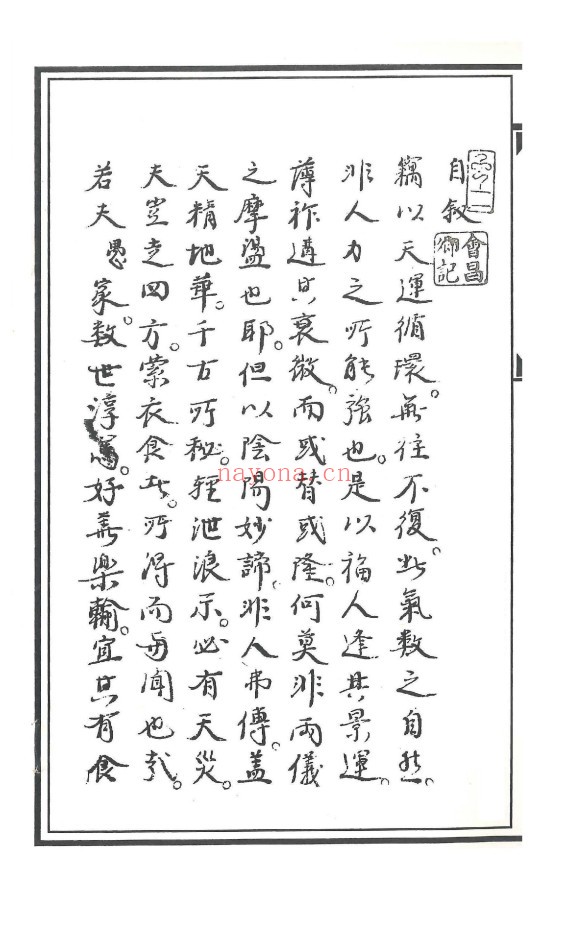 自叙
會昌
鄉記
竊以天運循環。無往不復。此氣數之自然。
非人力之所能強也。是以福人逢其景運。
薄祚遘其衰微。而或替或隆。何莫非兩儀
之摩盪也耶。但以陰陽妙諦。非人弗傳。蓋
天精地華。千古所秘。輕泄浪示。必有天災。
夫豈走四方。業衣食者。所得而與聞也哉。
若夫愚家。數世淳篤。好善樂輸。宜其有食
nayona.cn